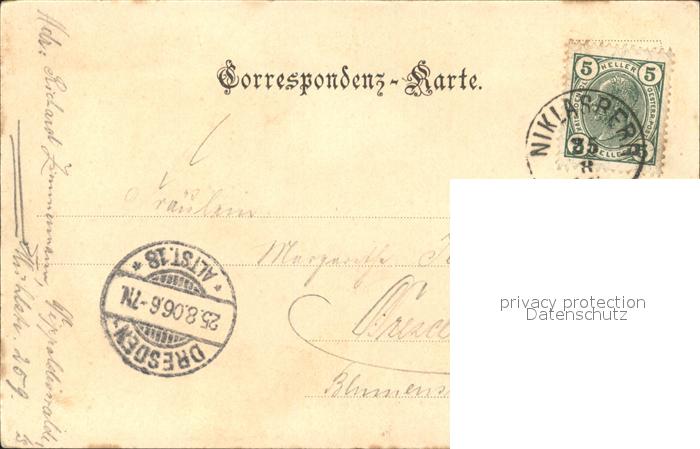 Correspondenz-Karte.
5 HELLER 5
NIKLASBERG
25
8
Fräulein
Margarethe
Dresden
Blumens
DRESDEN
* ALTST.18 *
25.8.06.6-7N.
Adr: Richard Zimmermann,
privacy protection
Datenschutz